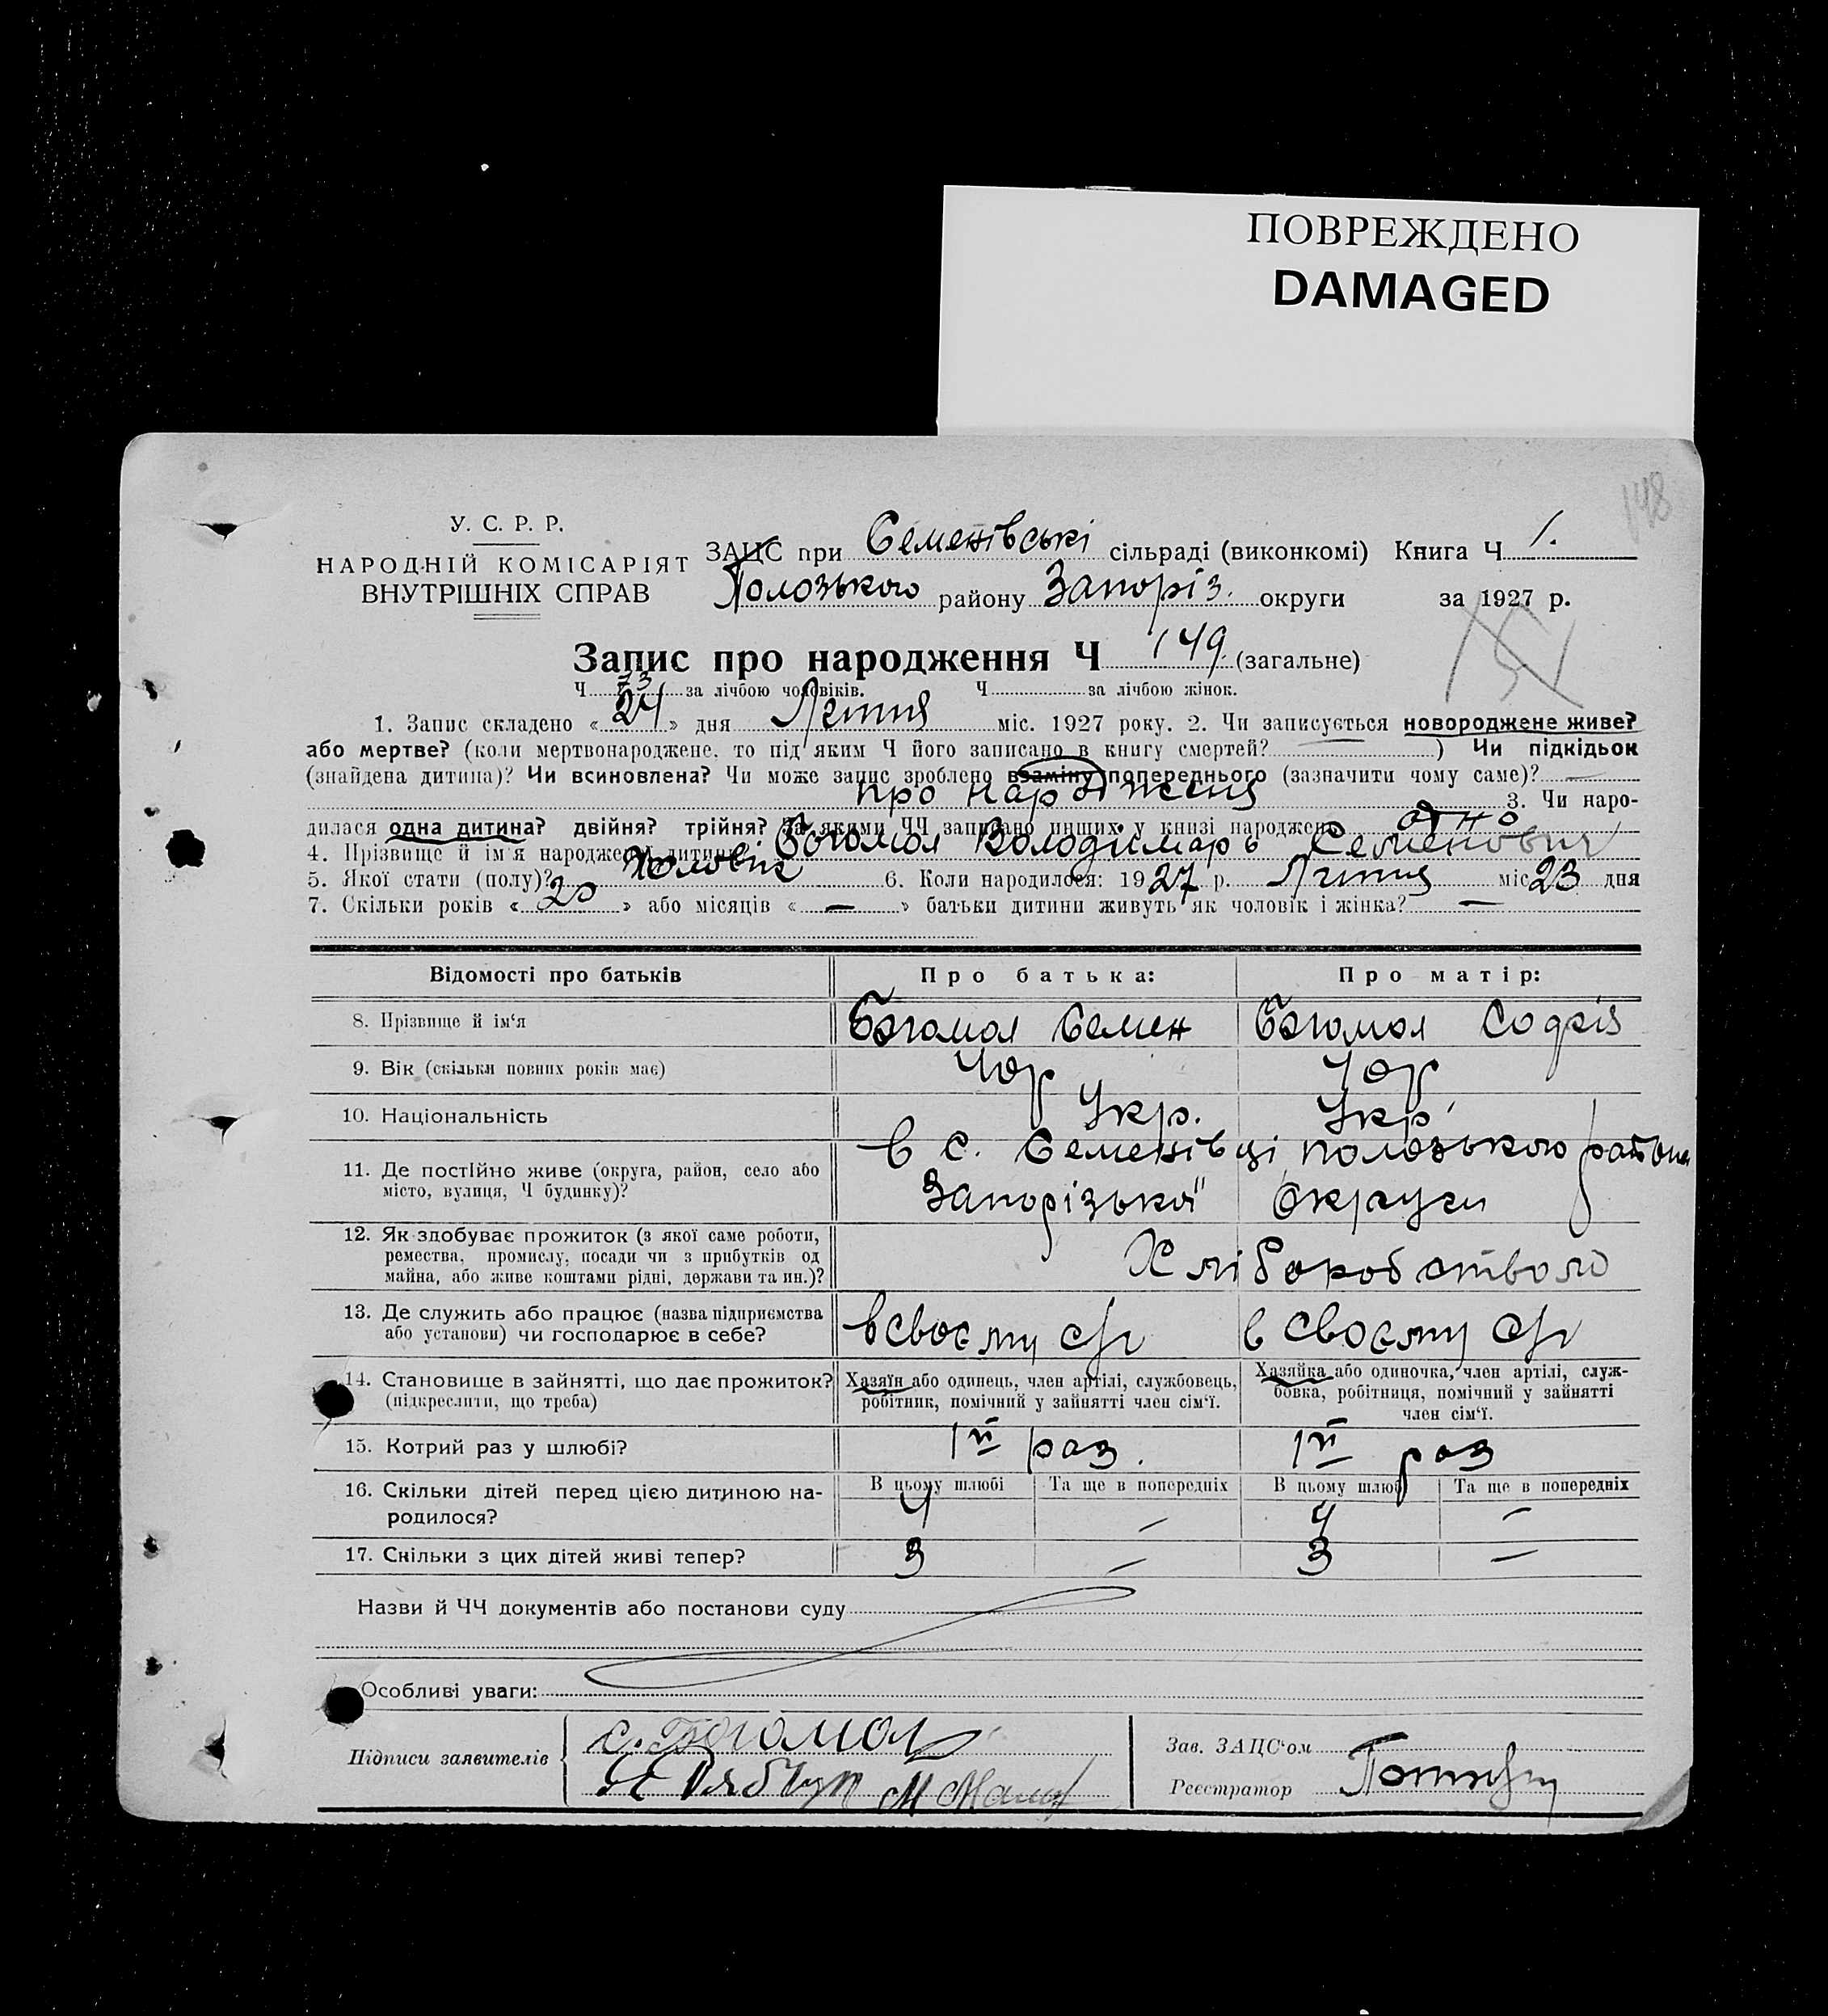 ПОВРЕЖДЕНО
DAMAGED
148
У. С. Р. Р.
НАРОДНІЙ КОМІСАРІЯТ
ВНУТРІШНІХ СПРАВ
ЗАЦС при Семенівські сільраді (виконкомі) Книга Ч 1.
Полозького району Запоріз. округи за 1927 р.
Запис про народження Ч 149 (загальне)
Ч 73 за лічбою чоловіків. Ч за лічбою жінок.
1. Запис складено « 24 » дня Липня міс. 1927 року. 2. Чи записується новороджене живе?
або мертве? (коли мертвонароджене, то під яким Ч його записано в книгу смертей? — ) Чи підкідьок
(знайдена дитина)? Чи всиновлена? Чи може запис зроблено взаміну попереднього (зазначити чому саме)? —
про народження 3. Чи наро-
дилася одна дитина? двійня? трійня? За якими ЧЧ записано инших у книзі народжень одно
4. Прізвище й ім'я народженої дитини: Богомол Володимир Семенович
5. Якої стати (полу)? Чоловік 6. Коли народилося: 1927 р. Липня міс 23 дня
7. Скільки років « 20 » або місяців « — » батьки дитини живуть як чоловік і жінка? —
Відомості про батьків Про батька: Про матір:
8. Прізвище й ім'я Богомол Семен Богомол Софія
9. Вік (скільки повних років має) 40р 40р
10. Національність Укр. Укр
11. Де постійно живе (округа, район, село або в с. Семенівці полозького району
місто, вулиця, Ч будинку)? Запорізької округи
12. Як здобуває прожиток (з якої саме роботи,
ремества, промислу, посади чи з прибутків од
майна, або живе коштами рідні, держави та ин.)? Хліборобством
13. Де служить або працює (назва підприємства
або установи) чи господарює в себе? в своєму в своєму
14. Становище в зайнятті, що дає прожиток? Хазяїн або одинець, член артілі, службовець, Хазяйка або одиночка, член артілі, служ-
(підкреслити, що треба) робітник, помічний у зайнятті член сім'ї. бовка, робітниця, помічний у зайнятті
член сім'ї.
15. Котрий раз у шлюбі? 1й раз. 1й раз
16. Скільки дітей перед цією дитиною на- В цьому шлюбі Та ще в попередніх В цьому шлюбі Та ще в попередніх
родилося? 4 — 4 —
17. Скільки з цих дітей живі тепер? 3 — 3 —
Назви й ЧЧ документів або постанови суду
Особливі уваги:
Підписи заявителів С. Богомол Зав. ЗАЦС'ом
Реєстратор